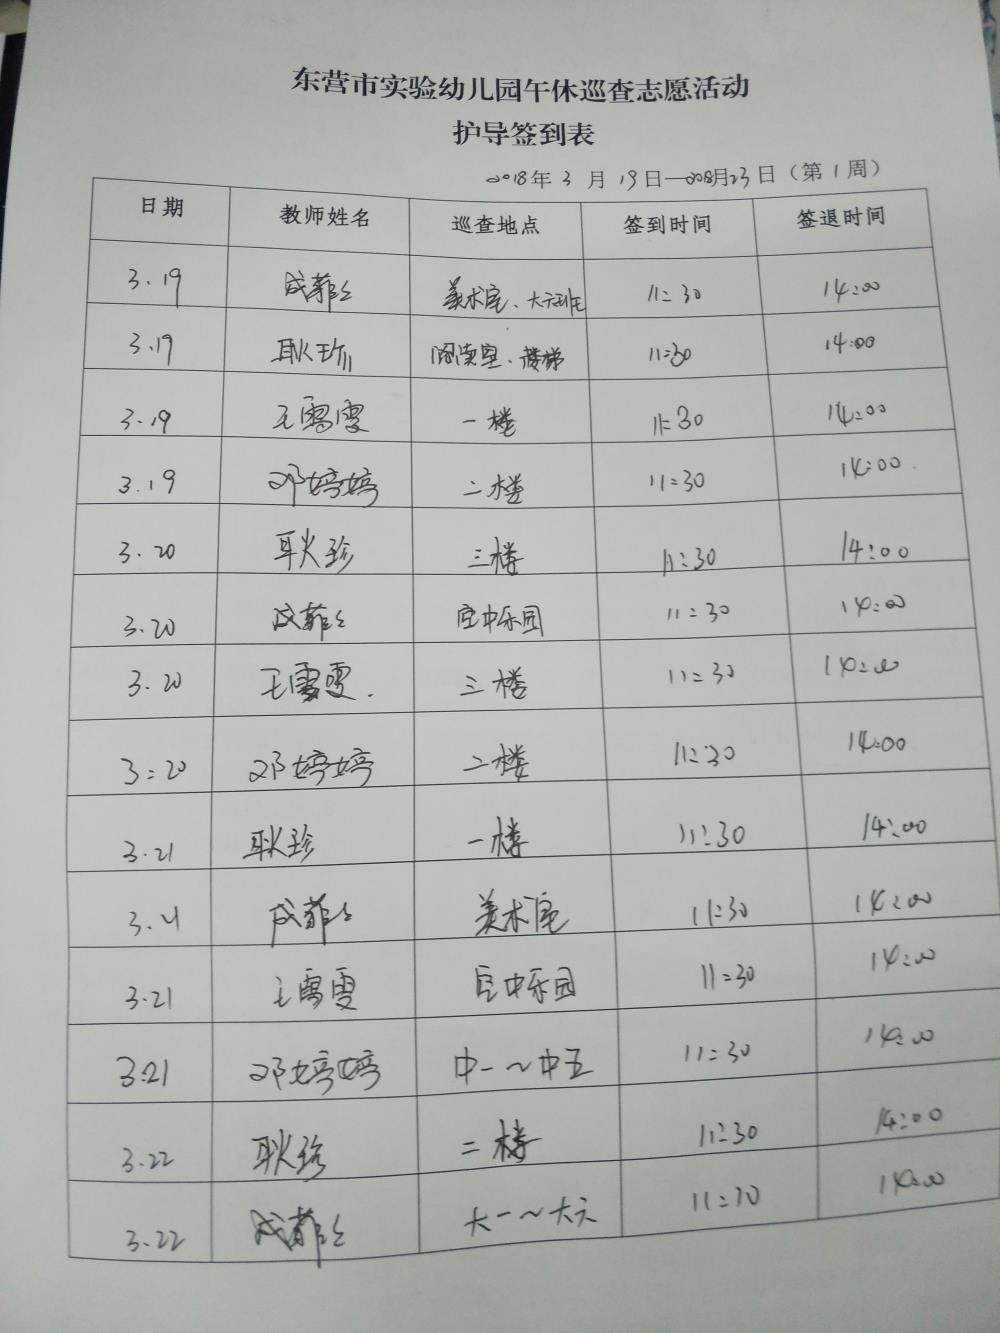 东营市实验幼儿园午休巡查志愿活动
护导签到表
2018年 3 月 19日—2018月23日（第1周）
日期 教师姓名 巡查地点 签到时间 签退时间
3.19 成菲 美术室、大六班 11:30 14:00
3.19 耿珍 阅读室、楼梯 11:30 14:00
3.19 王雪雯 一楼 11:30 14:00
3.19 邓婷婷 二楼 11:30 14:00
3.20 耿珍 三楼 11:30 14:00
3.20 成菲 空中乐园 11:30 14:00
3.20 王雪雯. 三楼 11:30 14:00
3:20 邓婷婷 二楼 11:30 14:00
3.21 耿珍 一楼 11:30 14:00
3.21 成菲 美术室 11:30 14:00
3.21 王雪雯 空中乐园 11:30 14:00
3.21 邓婷婷 中一～中五 11:30 14:00
3.22 耿珍 二楼 11:30 14:00
3.22 成菲 大一～大六 11:30 14:00